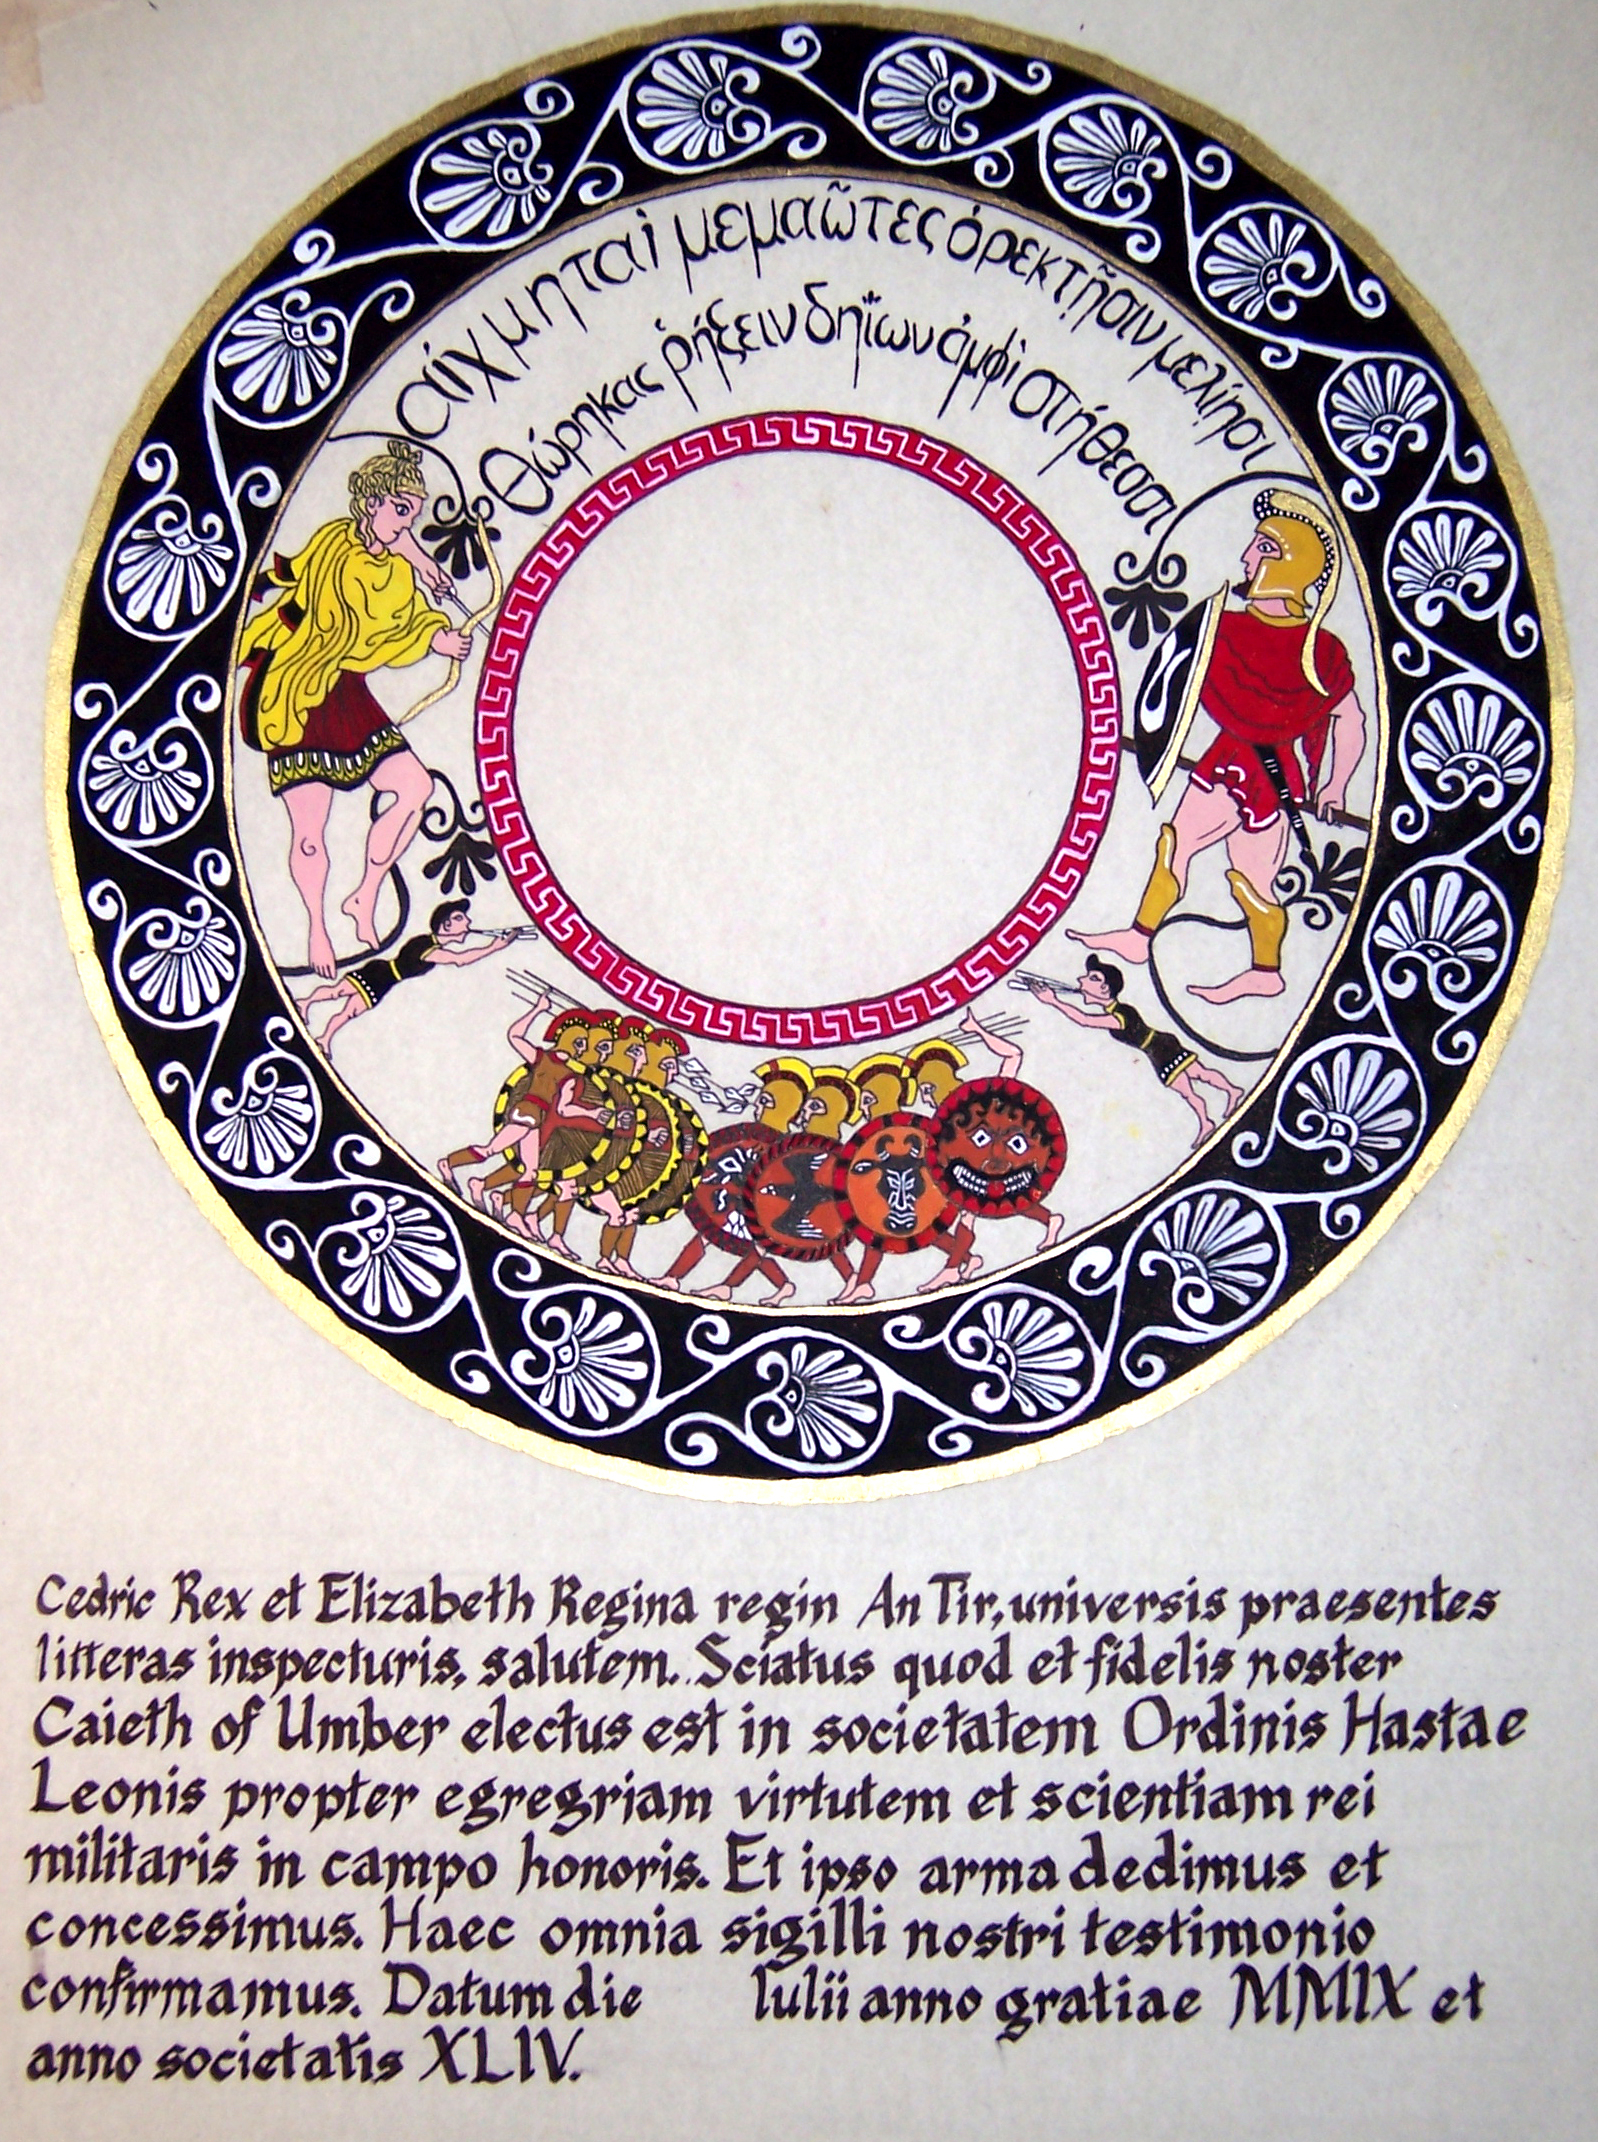 αἰχμηταὶ μεμαῶτες ὀρεκτῇσιν μελίῃσι
θώρηκας ῥήξειν δηΐων ἀμφὶ στήθεσσι
Cedric Rex et Elizabeth Regina regin An Tir, universis praesentes
litteras inspecturis, salutem. Sciatus quod et fidelis noster
Caieth of Umber electus est in societatem Ordinis Hastae
Leonis propter egregriam virtutem et scientiam rei
militaris in campo honoris. Et ipso arma dedimus et
concessimus. Haec omnia sigilli nostri testimonio
confirmamus. Datum die Iulii anno gratiae MMIX et
anno societatis XLIV.